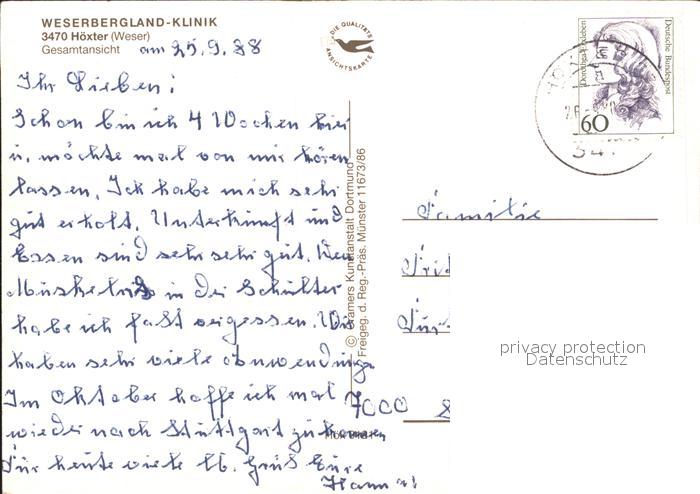 WESERBERGLAND-KLINIK
3470 Höxter (Weser)
Gesamtansicht am 25.9.88
DIE QUALITÄTS
ANSICHTSKARTE
Dorothea Erxleben
Deutsche Bundespost
60
34
Ihr Lieben!
Schon bin ich 4 Wochen hier
u. möchte mal von mir hören
lassen. Ich habe mich sehr
gut erholt. Unterkunft und
Essen sind sehr sehr gut. Den
Muskelriß in der Schulter
habe ich fast vergessen. Wir
haben sehr viele Anwendungen
Im Oktober hoffe ich mal
wieder nach Stuttgart zu kommen
Für heute viele lb. Grüß Eure
© Cramers Kunstanstalt Dortmund
Freigeg. d. Reg.-Präs. Münster 11673/86
Familie
7000
privacy protection
Datenschutz